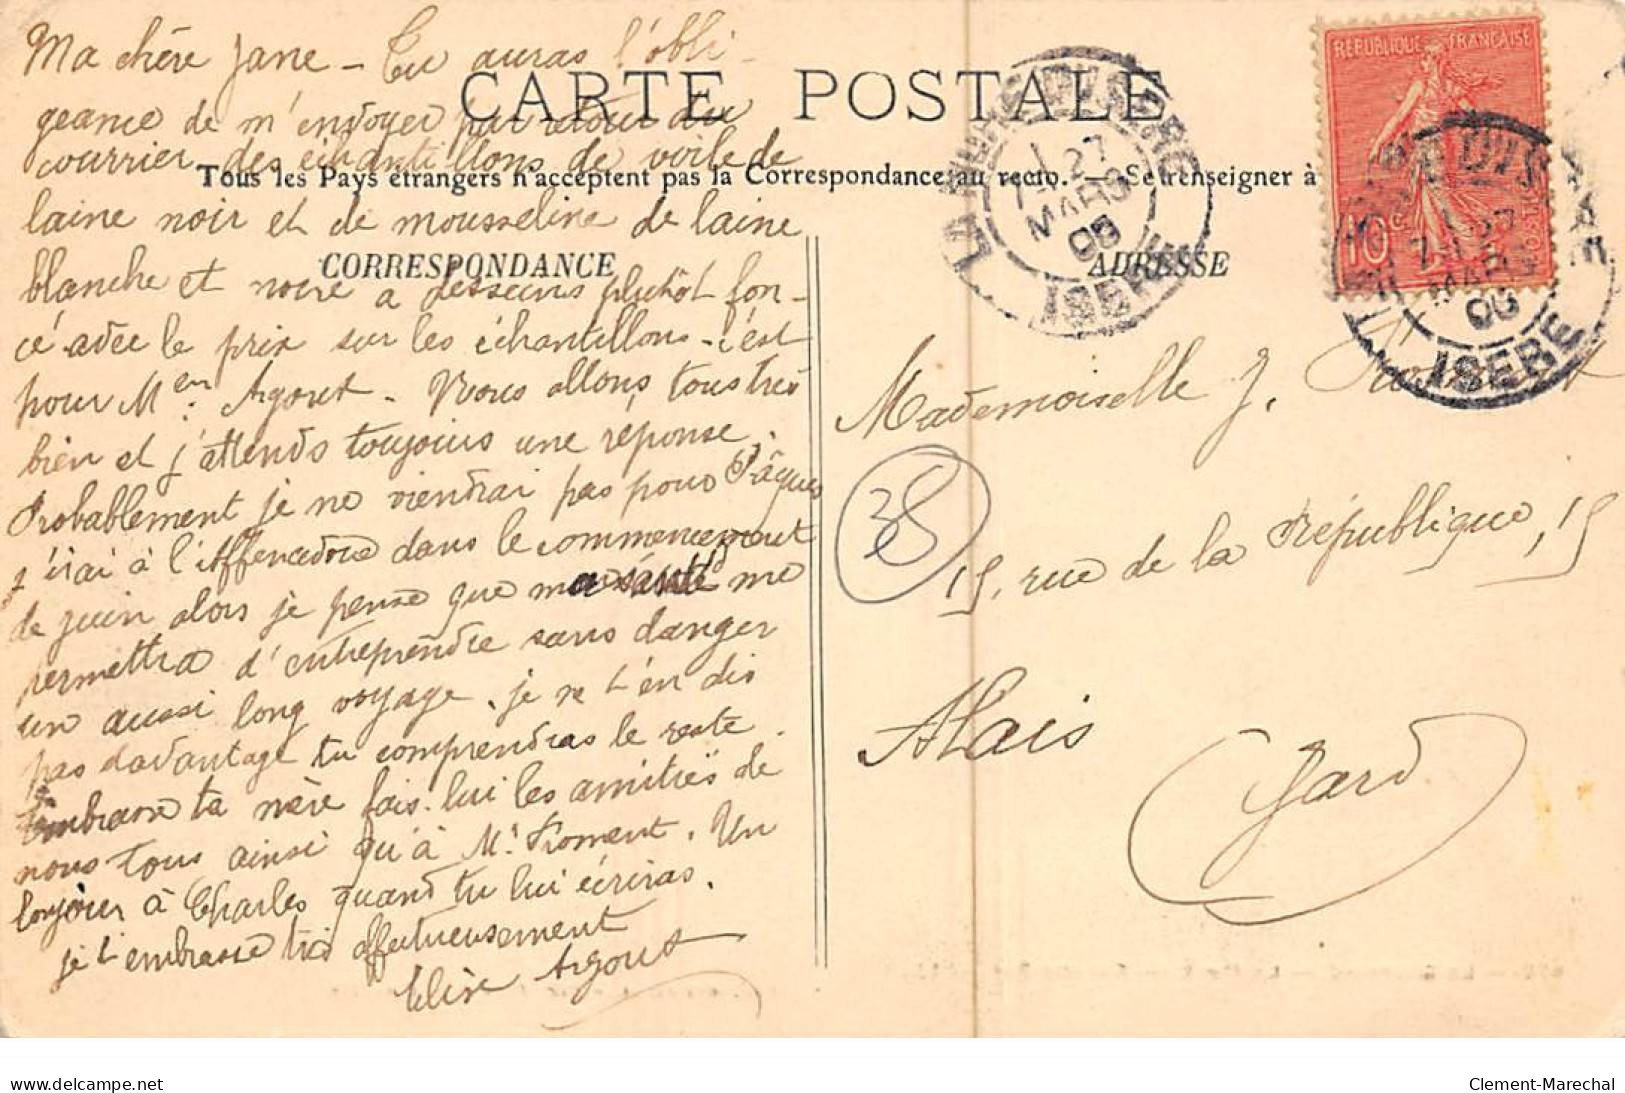 CARTE POSTALE
Tous les Pays étrangers n'acceptent pas la Correspondance au recto. — Se renseigner à
CORRESPONDANCE
ADRESSE
Ma chère Jane – Tu auras l'obli-
geance de m'envoyer par retour du
courrier des échantillons de voile de
laine noir et de mousseline de laine
blanche et noire à dessins plutôt fon-
cé avec le prix sur les échantillons – c'est
pour M en Argout – Nous allons tous très
bien et j'attends toujours une réponse.
Probablement je ne viendrai pas pour Pâques
j'irai à l'Affenadou dans le commencement
de juin alors je pense que ma santé me
permettra d'entreprendre sans danger
un aussi long voyage. je ne t'en dis
pas davantage tu comprendras le reste.
Embrasse ta mère fais-lui les amitiés de
nous tous ainsi qu'à Mr Froment. Un
bonjour à Charles quand tu lui écriras.
je t'embrasse très affectueusement
Elise Argout
REPUBLIQUE FRANÇAISE
10 c
POSTES
27
MARS
ISERE
27
MARS
06
ISERE
Mademoiselle J. Froment
38
15, rue de la République, 15
Alais
Gard
www.delcampe.net
Clement-Marechal